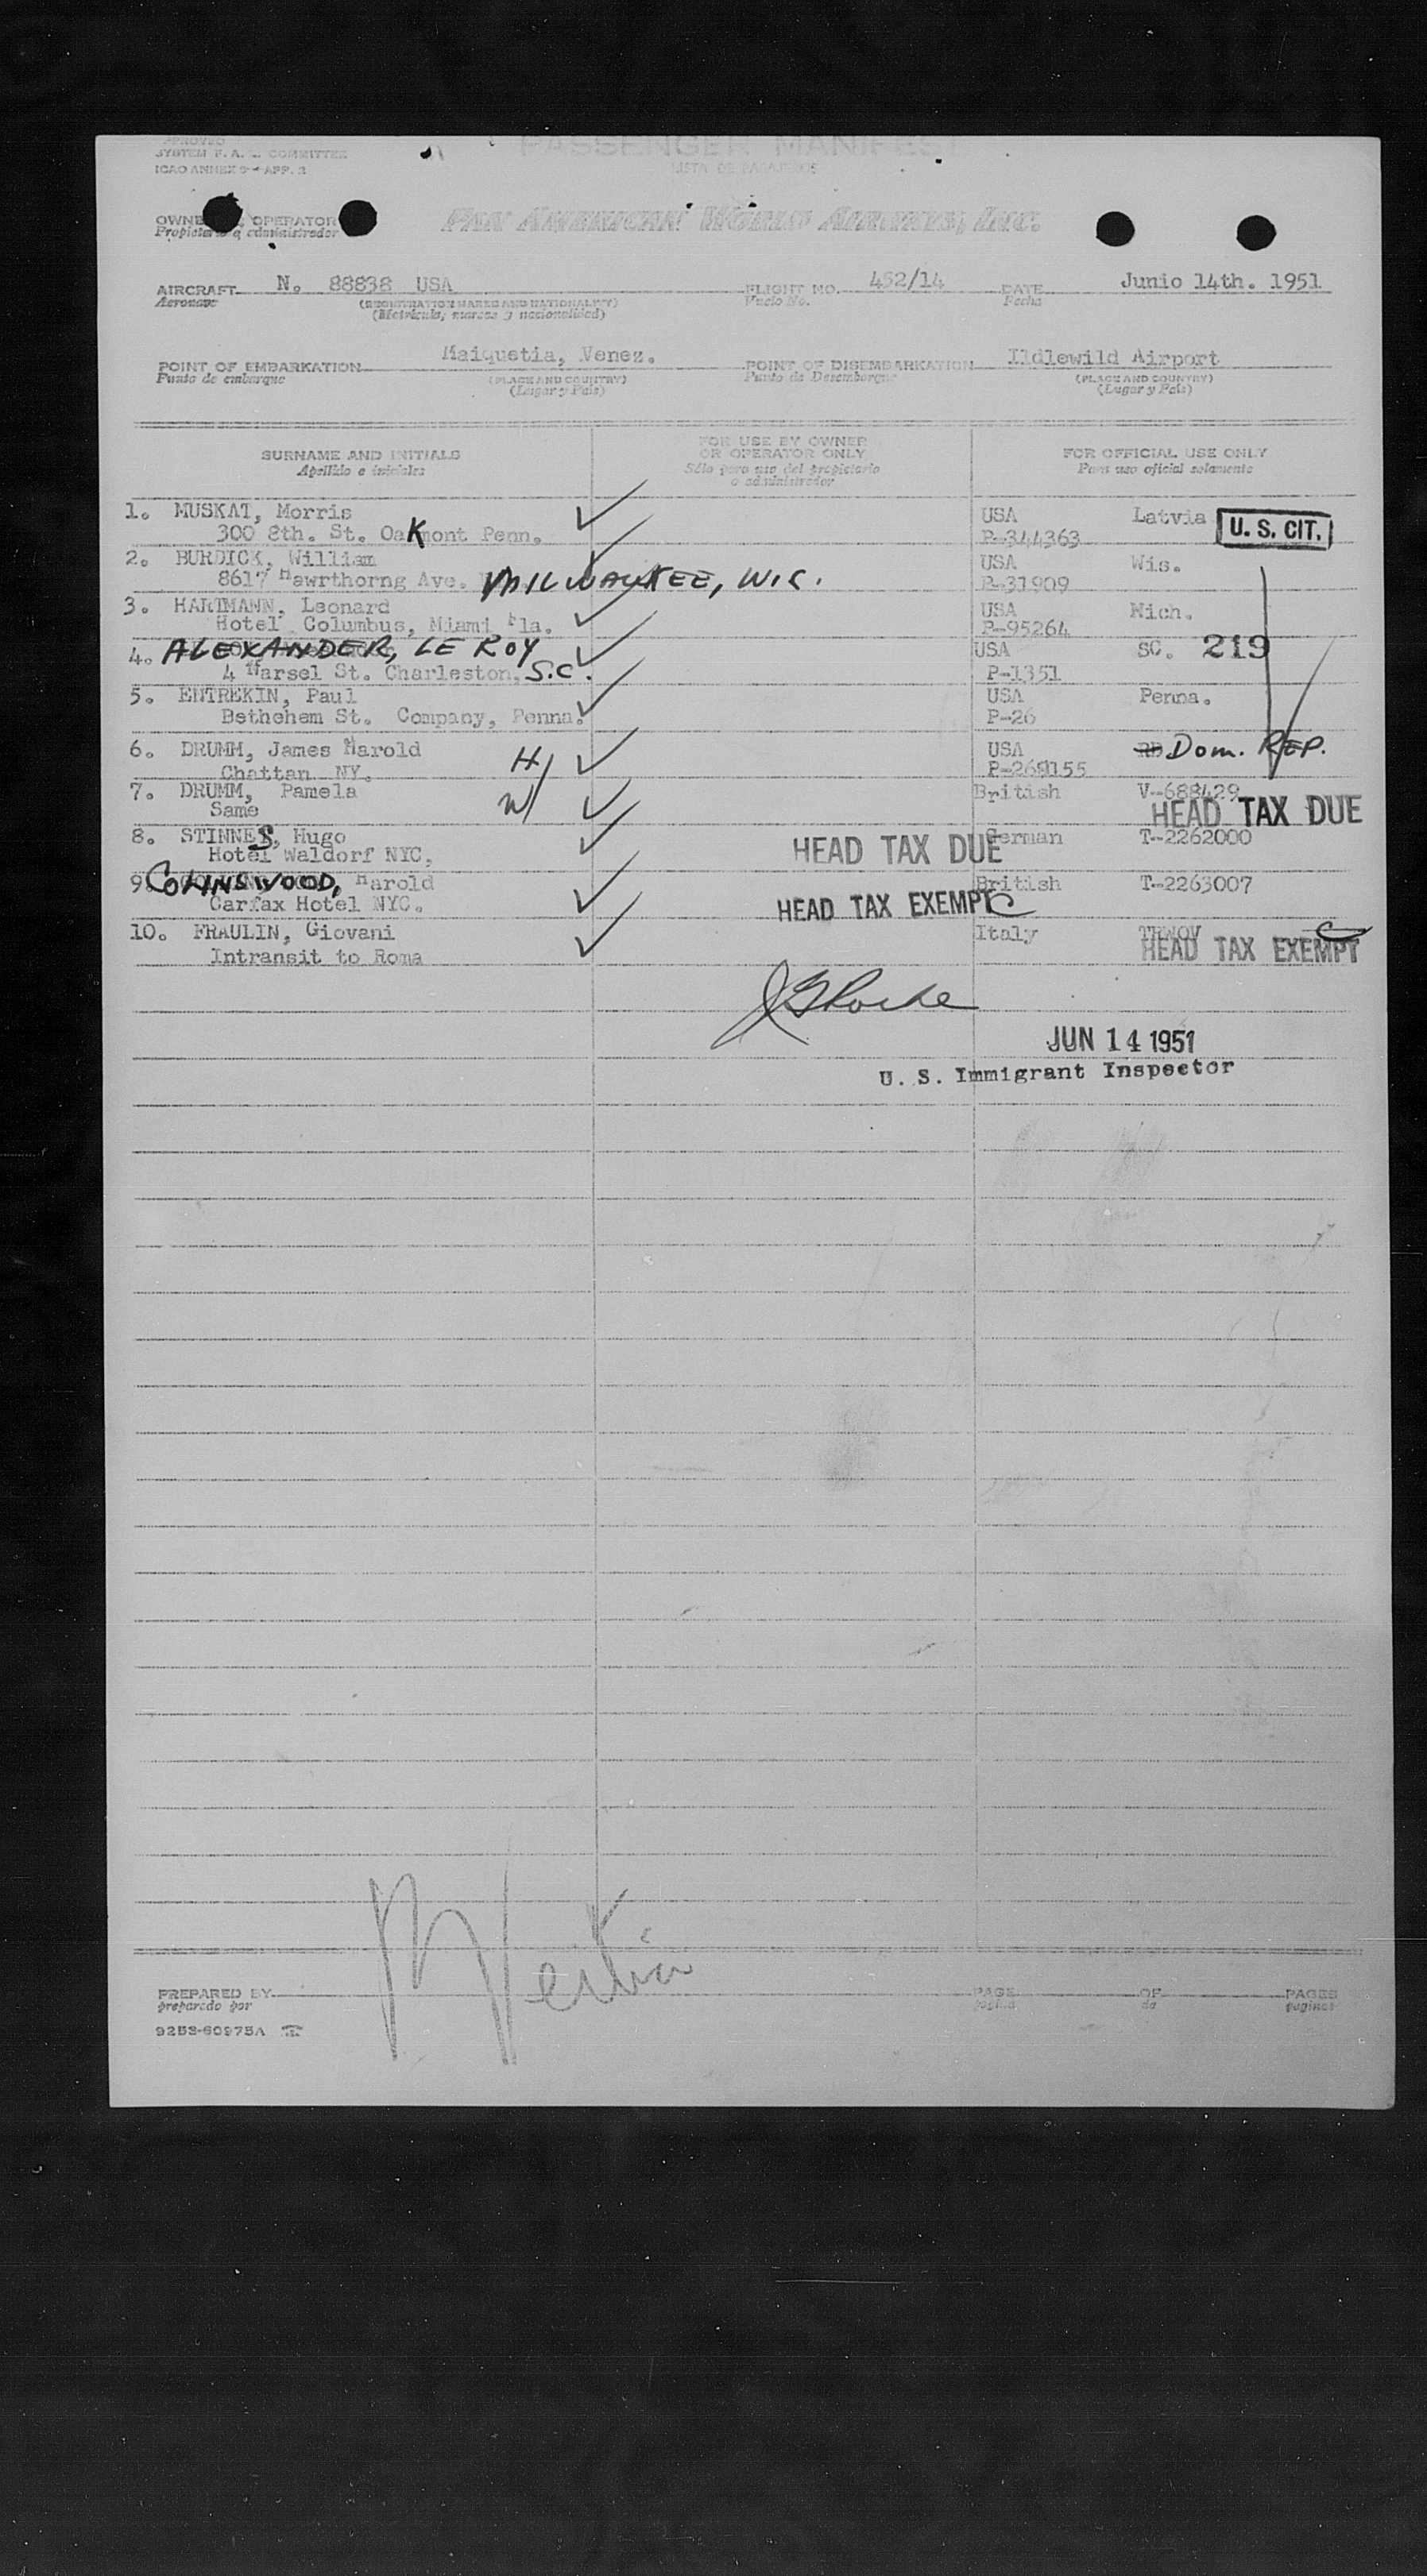 APPROVED
SYSTEM F. A. L. COMMITTEE
ICAO ANNEX 9 - APP. 2
PASSENGER MANIFEST
LISTA DE PASAJEROS
OWNER OPERATOR
Propietario o administrador
PAN AMERICAN WORLD AIRWAYS, INC.
AIRCRAFT N. 88838 USA FLIGHT NO. 452/14 DATE Junio 14th. 1951
Aeronave (REGISTRATION MARKS AND NATIONALITY) Vuelo No. Fecha
(Matrícula, marcas y nacionalidad)
POINT OF EMBARKATION Maiquetia, Venez. POINT OF DISEMBARKATION Ildlewild Airport
Punto de embarque (PLACE AND COUNTRY) Punto de Desembarque (PLACE AND COUNTRY)
(Lugar y País) (Lugar y País)
SURNAME AND INITIALS FOR USE BY OWNER OR OPERATOR ONLY FOR OFFICIAL USE ONLY
Apellido e iniciales Sólo para uso del propietario o administrador Para uso oficial solamente
1. MUSKAT, Morris USA Latvia U. S. CIT.
300 8th. St. Oakmont Penn. P-344363
2. BURDICK, William USA Wis.
8617 Hawrthorng Ave. MILWAUKEE, WIS. P-31909
3. HARTMANN, Leonard USA Mich.
Hotel Columbus, Miami Fla. P-95264
4. ALEXANDER, LE ROY USA SC. 219
4 Warsel St. Charleston, S.C. P-1351
5. ENTREKIN, Paul USA Penna.
Bethehem St. Company, Penna. P-26
6. DRUMM, James Harold H/ USA Dom. REP.
Chattan NY. P-269155
7. DRUMM, Pamela W/ British V-688429
Same HEAD TAX DUE
8. STINNES, Hugo HEAD TAX DUE German T-2262000
Hotel Waldorf NYC,
9. COLINSWOOD, Harold British T-2263007
Carfax Hotel NYC. HEAD TAX EXEMPT
10. FRAULIN, Giovani Italy TRWOV
Intransit to Roma HEAD TAX EXEMPT
JUN 14 1951
U. S. Immigrant Inspector
PREPARED BY PAGE OF PAGES
preparado por página de páginas
9253-60975A